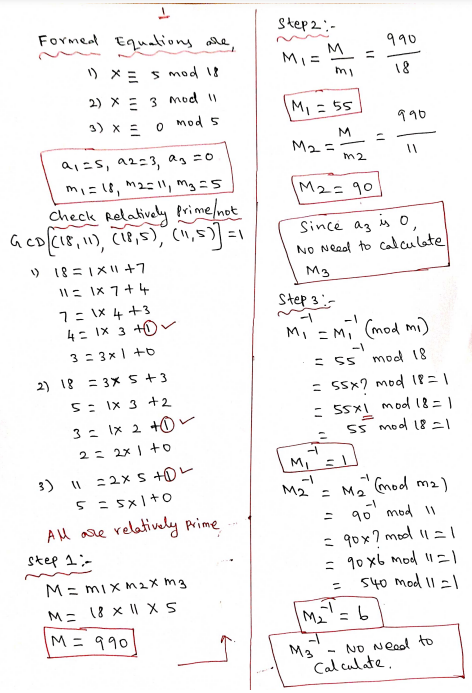 1
Formed Equations are,
1) x ≡ 5 mod 18
2) x ≡ 3 mod 11
3) x ≡ 0 mod 5
a₁=5, a2=3, a₃=0
m₁=18, m2=11, m3=5
Check Relatively Prime/not
GCD[(18,11), (18,5), (11,5)]=1
1) 18 = 1x11+7
11 = 1x7+4
7 = 1x4+3
4 = 1x3+1 ✓
3 = 3x1+0
2) 18 = 3x5+3
5 = 1x3+2
3 = 1x2+1 ✓
2 = 2x1+0
3) 11 = 2x5+1 ✓
5 = 5x1+0
All are relatively Prime
Step 1:-
M = m1xm2xm3
M = 18 x 11 x 5
M = 990
Step 2:-
M₁ = M/m₁ = 990/18
M₁ = 55
M2 = M/m2 = 990/11
M2 = 90
Since a3 is 0,
No Need to calculate
M3
Step 3:-
M₁⁻¹ = M₁⁻¹ (mod m1)
= 55⁻¹ mod 18
= 55x? mod 18 = 1
= 55x1 mod 18 = 1
= 55 mod 18 = 1
M₁⁻¹ = 1
M2⁻¹ = M2⁻¹ (mod m2)
= 90⁻¹ mod 11
= 90x? mod 11 = 1
= 90x6 mod 11 = 1
= 540 mod 11 = 1
M2⁻¹ = 6
M3⁻¹ - No Need to
Calculate.